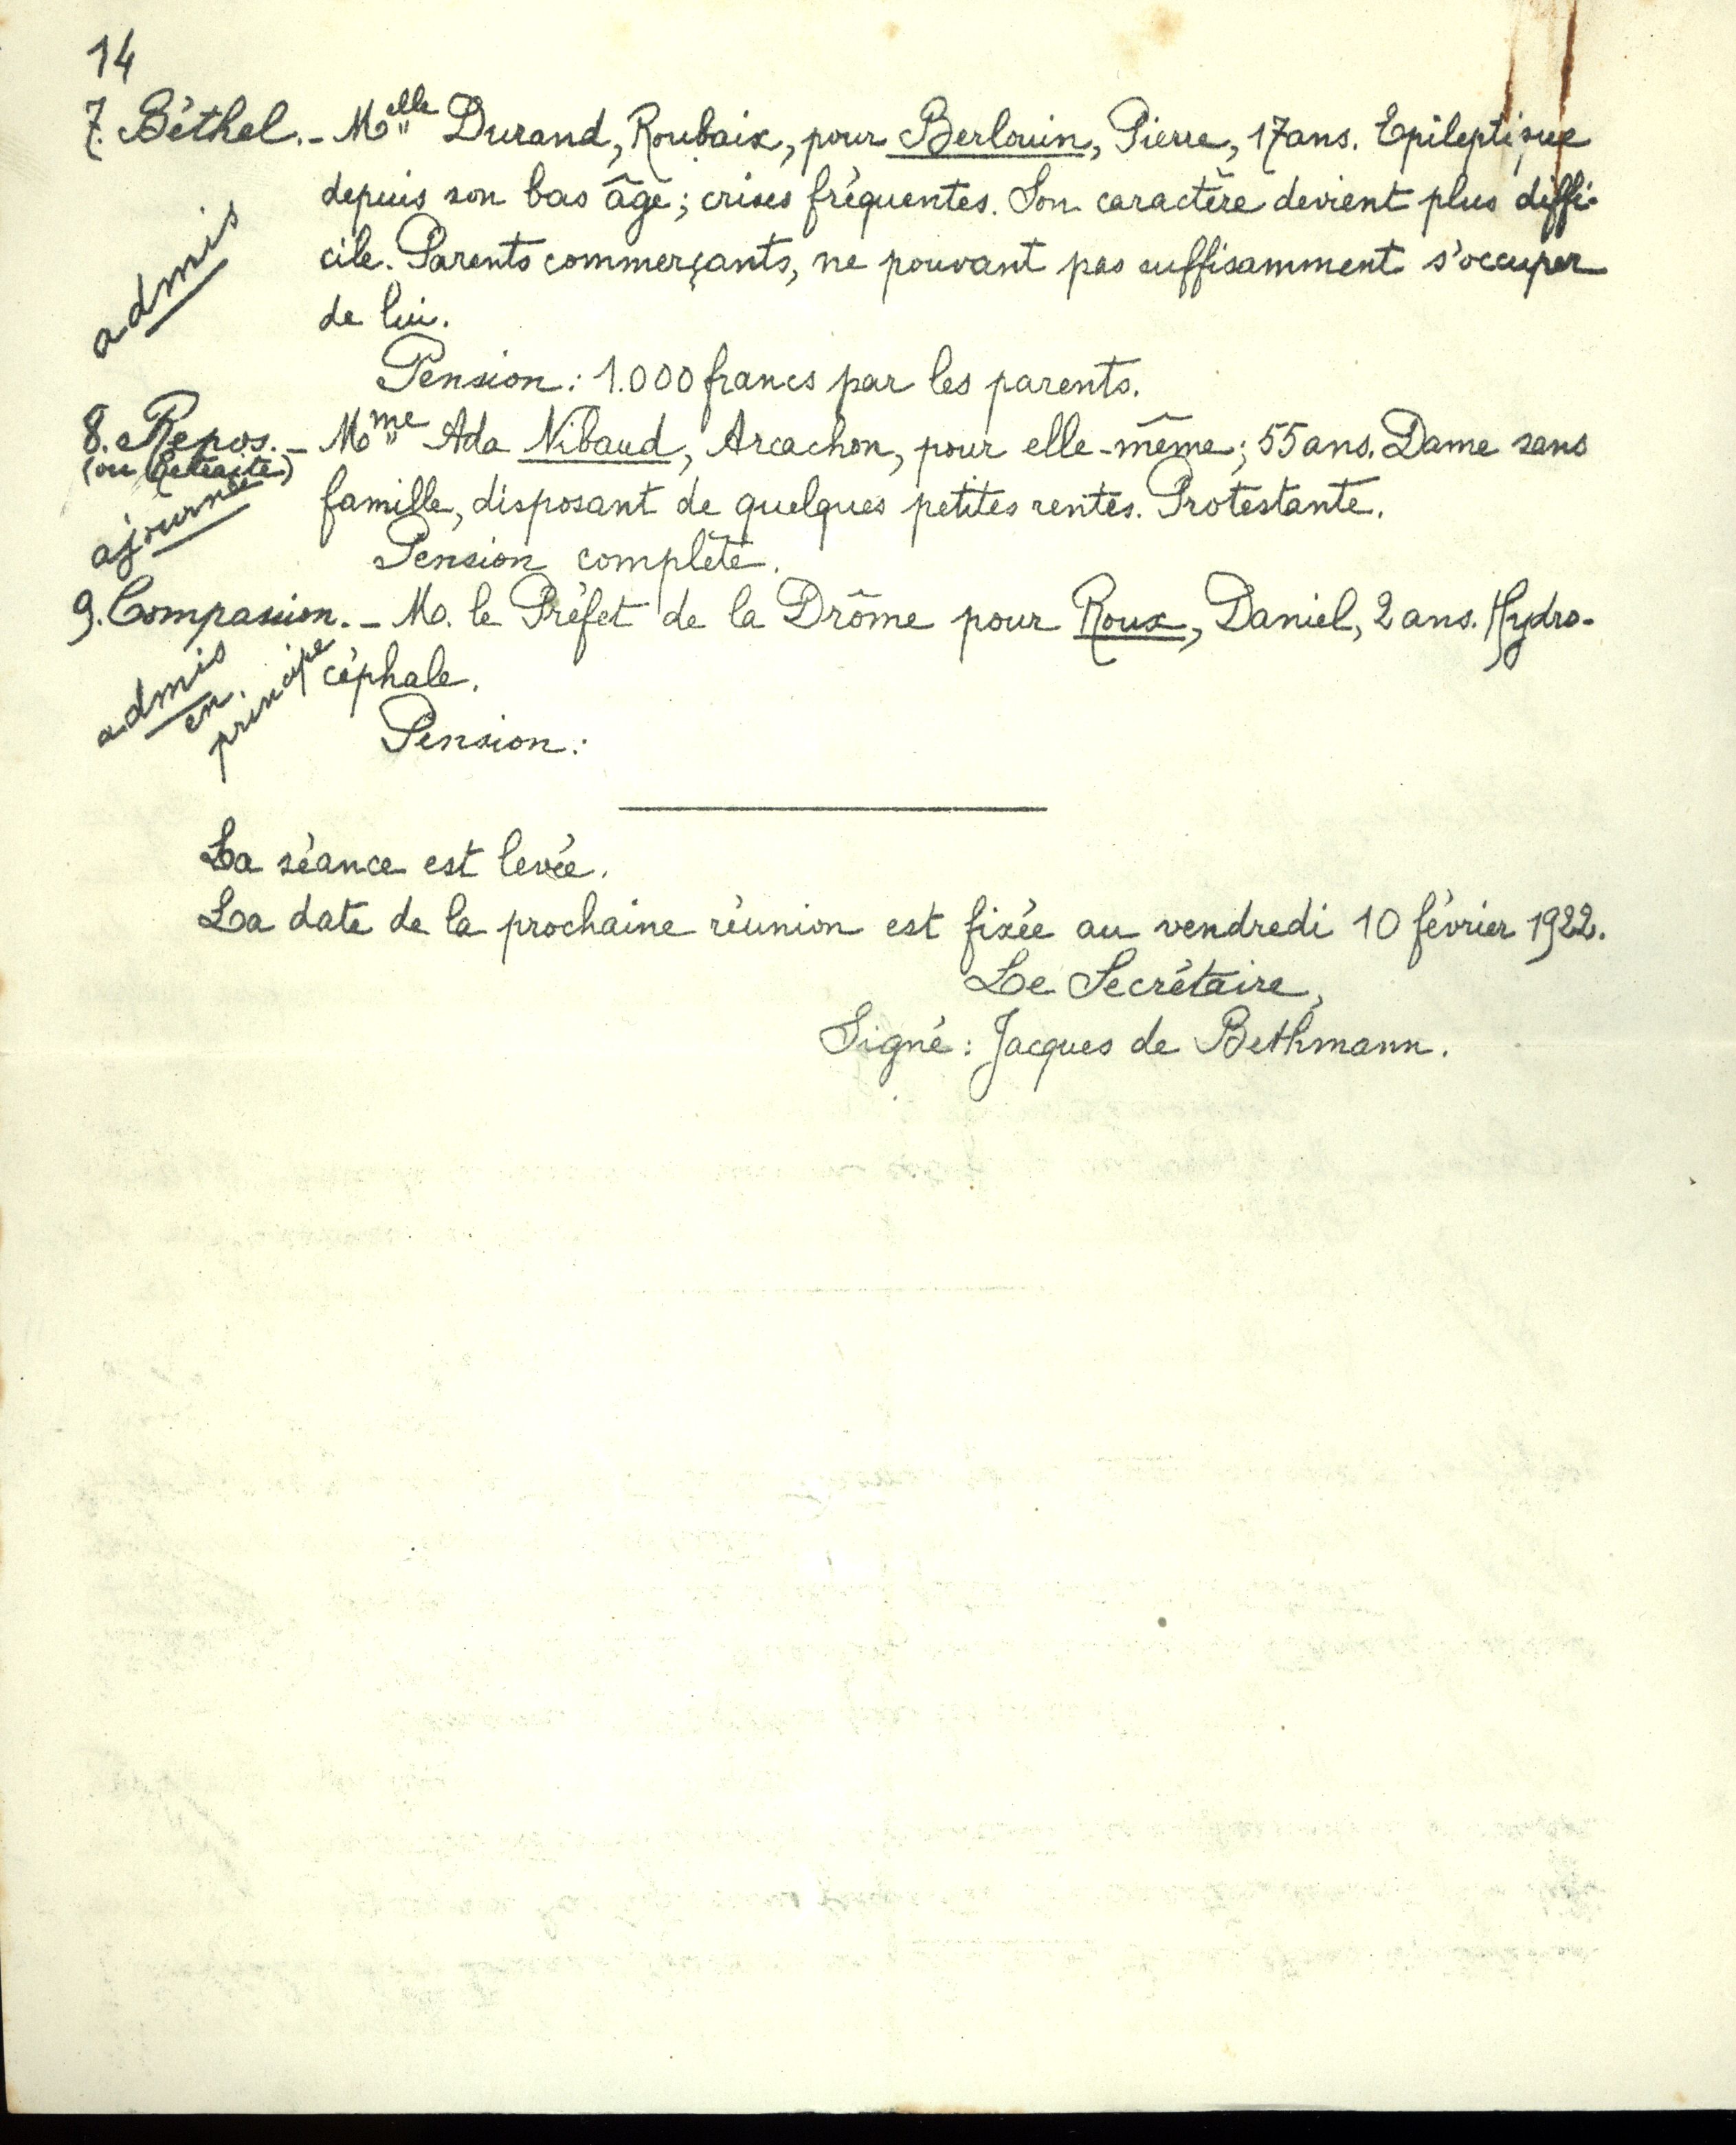 14
7. Béthel. - Melle Durand, Roubaix, pour Berlouin, Pierre, 17 ans. Epileptique
depuis son bas âge; crises fréquentes. Son caractère devient plus diffi-
cile. Parents commerçants, ne pouvant pas suffisamment s'occuper
de lui.
admis
Pension: 1.000 francs par les parents.
8. Repos. - Mme Ada Nibaud, Arcachon, pour elle-même; 55 ans. Dame sans
(ou Retraite)
famille, disposant de quelques petites rentes. Protestante.
ajournée
Pension complète.
9. Compassion. - M. le Préfet de la Drôme pour Roux, Daniel, 2 ans. Hydro-
céphale.
admis
en
principe
Pension:
La séance est levée.
La date de la prochaine réunion est fixée au vendredi 10 février 1922.
Le Secrétaire,
Signé: Jacques de Bethmann.